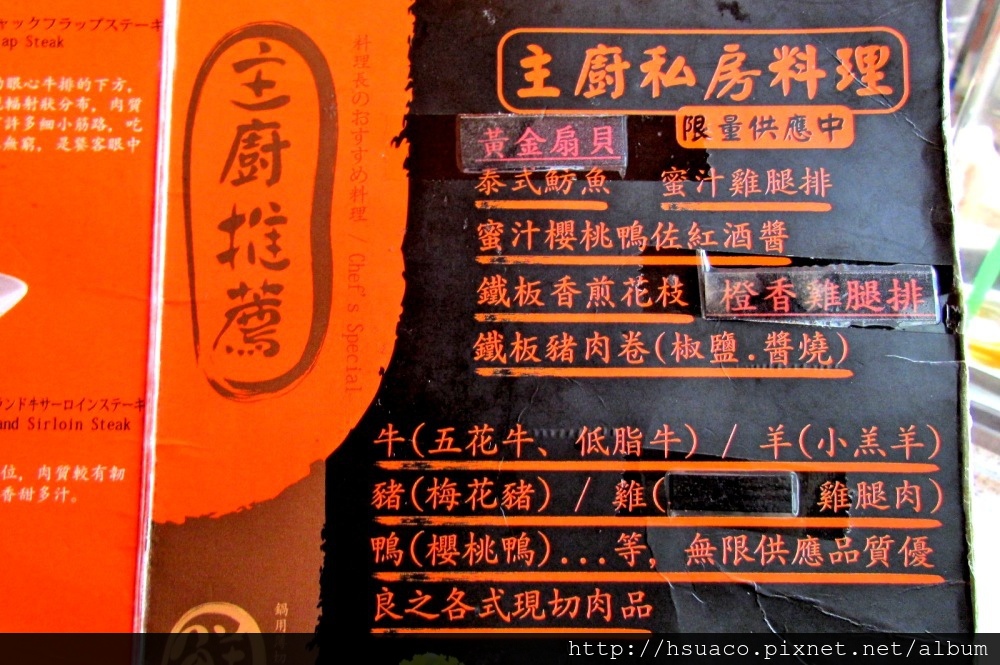 ャックフラップステーキ
ap Steak
眼心牛排的下方,
輻射狀分布, 肉質
許多細小筋路, 吃
無窮, 是饕客眼中
ランド牛サーロインステーキ
and Sirloin Steak
位, 肉質較有韌
香甜多汁。
主廚推薦
料理長のおすすめ料理 / Chef's Special
鍋用
主廚私房料理
限量供應中
黃金扇貝
泰式魴魚 蜜汁雞腿排
蜜汁櫻桃鴨佐紅酒醬
鐵板香煎花枝 橙香雞腿排
鐵板豬肉卷(椒鹽.醬燒)
牛(五花牛、低脂牛) / 羊(小羔羊)
豬(梅花豬) / 雞( 雞腿肉)
鴨(櫻桃鴨)...等, 無限供應品質優
良之各式現切肉品
http://hsuaco.pixnet.net/album